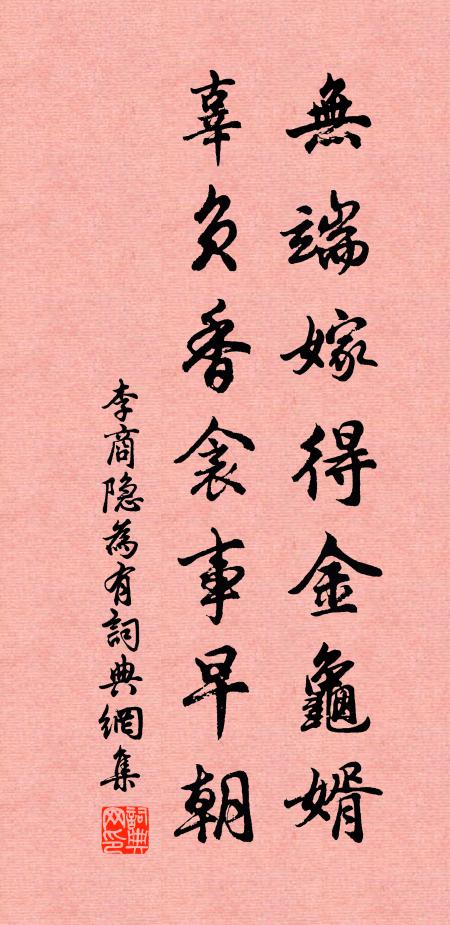 無端嫁得金龜婿
辜負香衾事早朝
李商隐為有詞典網集
詞典网印